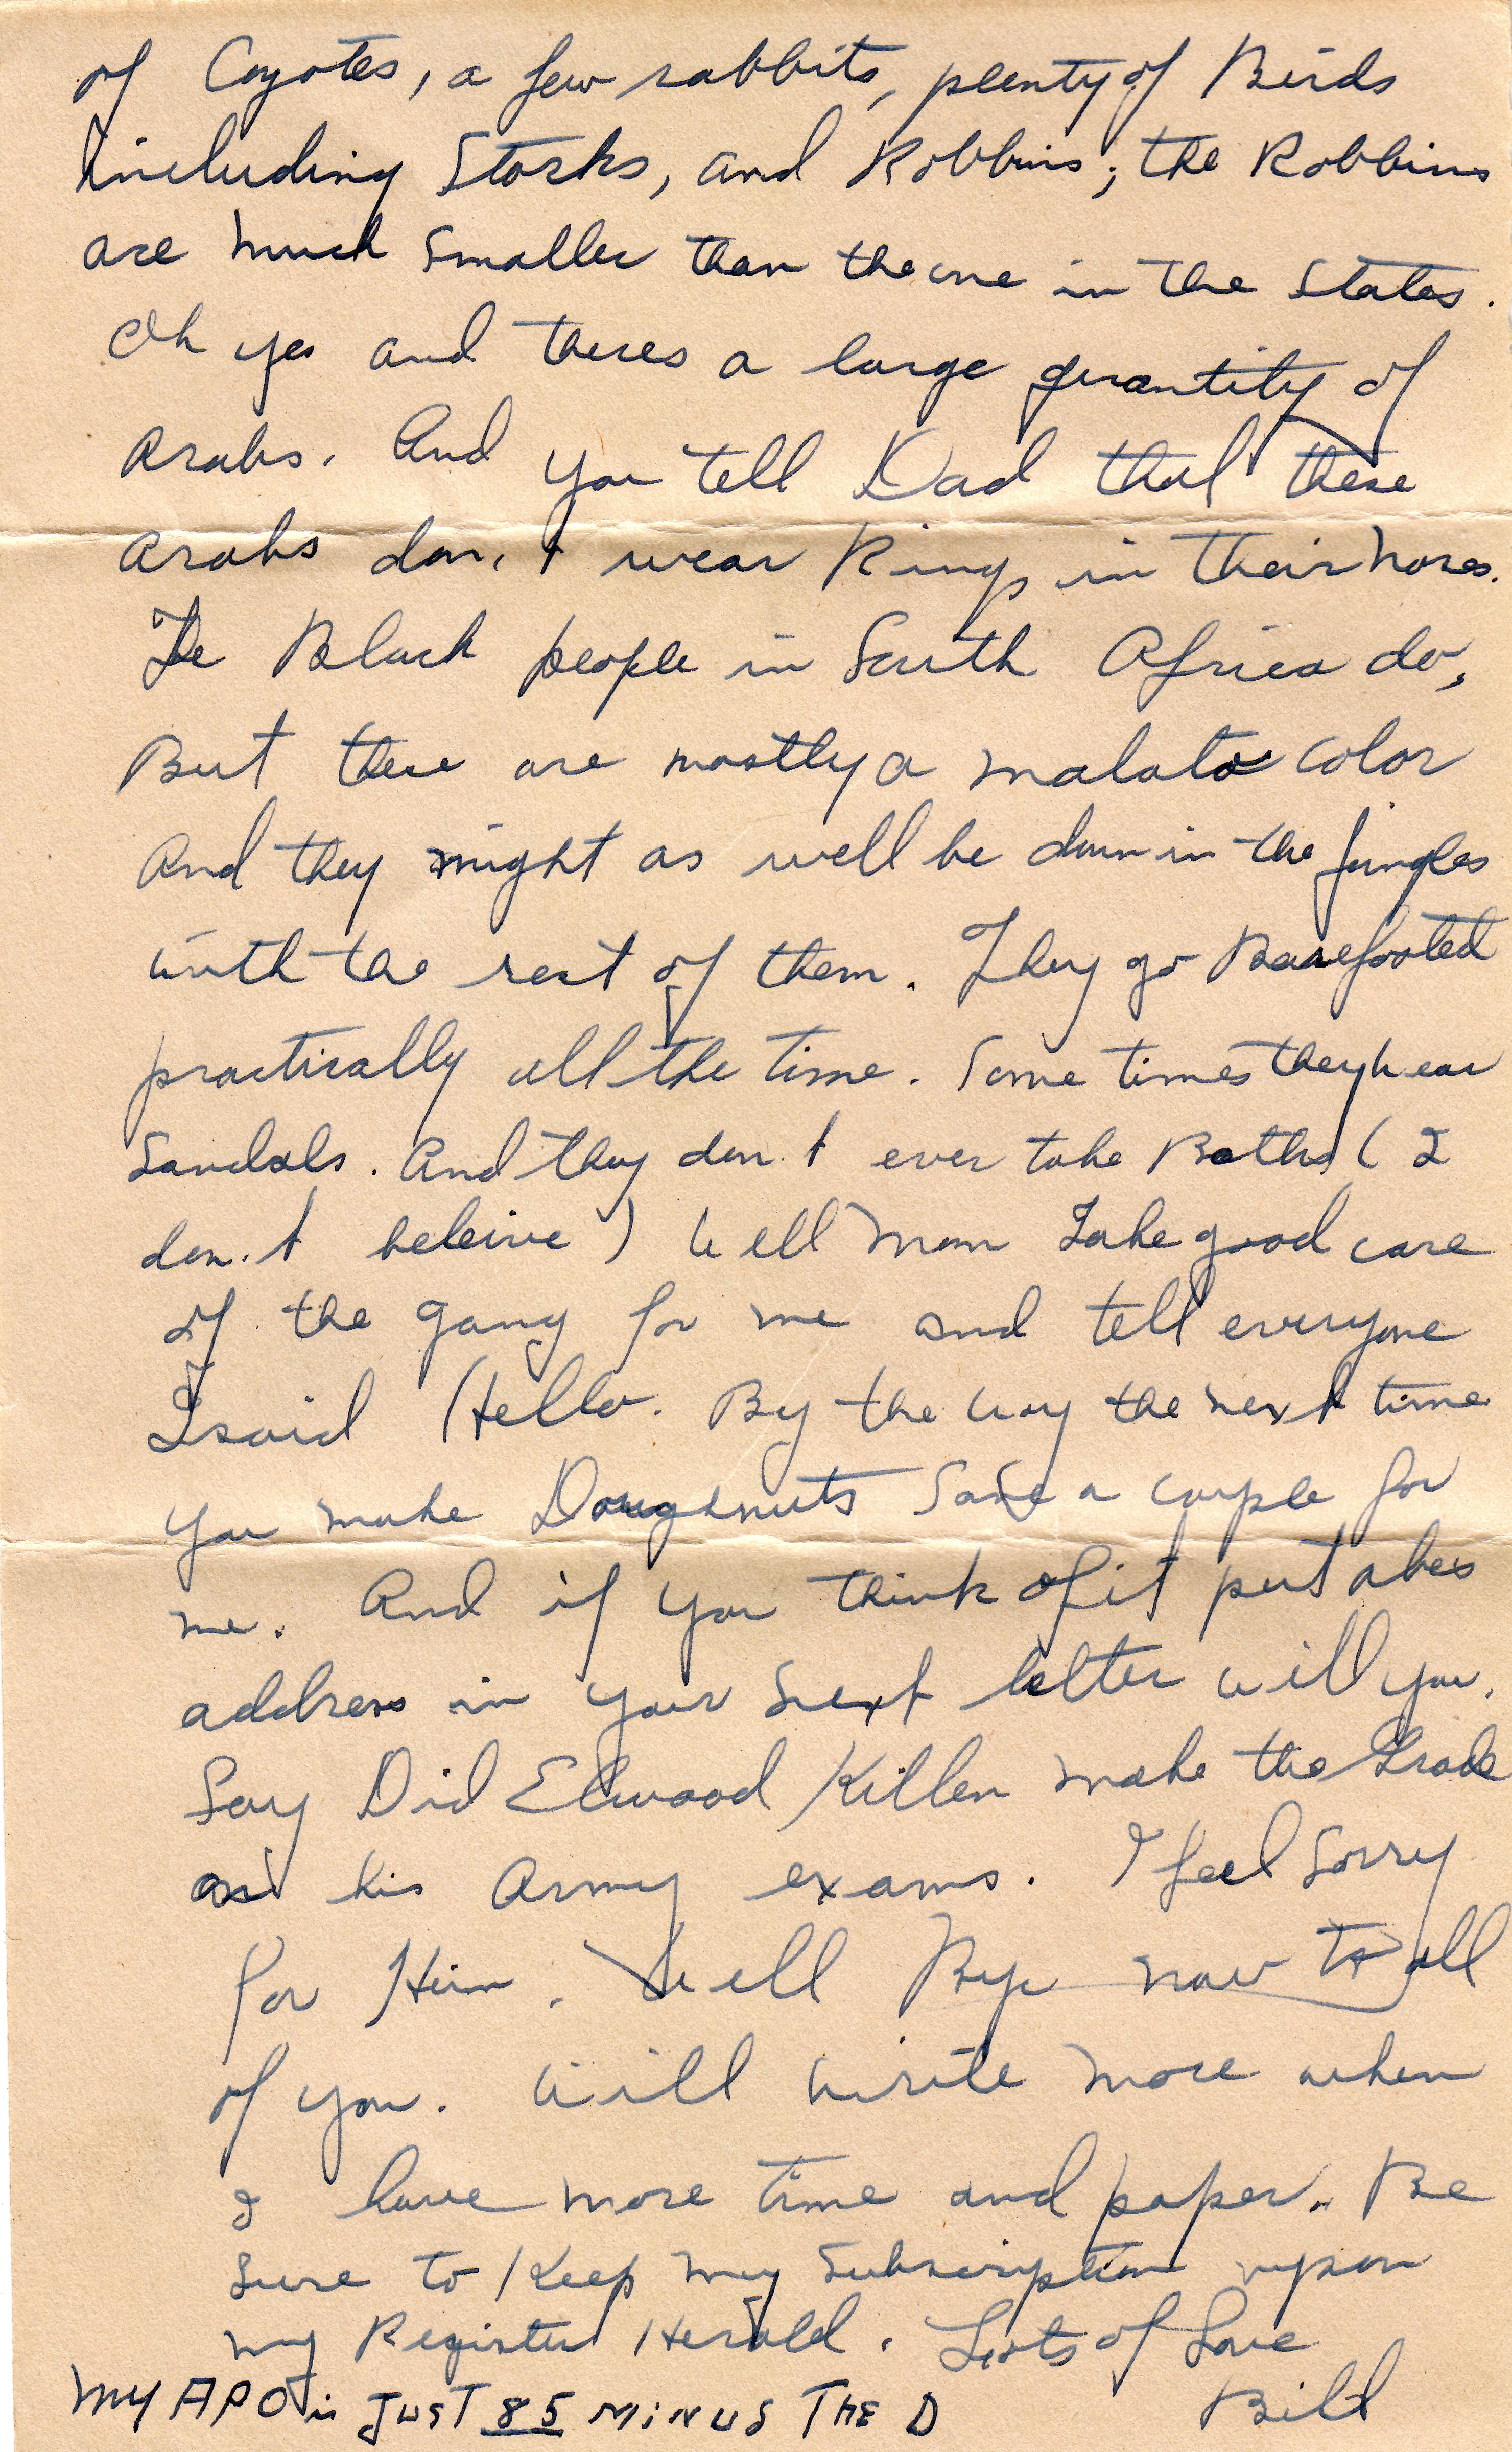 of Coyotes, a few rabbits, plenty of Birds
including Storks, and Robbins; the Robbins
are much smaller than the one in the States.
Oh yes and theres a large quantity of
Arabs. And you tell Dad that these
Arabs don,t wear Rings in their noses.
The Black people in South Africa do,
But these are mostly a malato color
And they might as well be down in the jungles
with the rest of them. They go Barefooted
practically all the time. Some times they wear
Sandals. And they don.t ever take Baths ( I
don.t beleive ) Well Mom Take good care
of the gang for me and tell everyone
I said Hello. By the way the next time
you make Doughnuts Save a couple for
me. And if you think of it put abes
address in your next letter will you.
Say Did Elwood Killen make the Grade
on his Army exams. I feel Sorry
for Him. Well Bye now to all
of you. Will write more when
I have more time and paper. Be
Sure to Keep my Subscription up on
my Register Herald. Lots of Love
Bill
MY APO is JUST 85 MINUS THE D